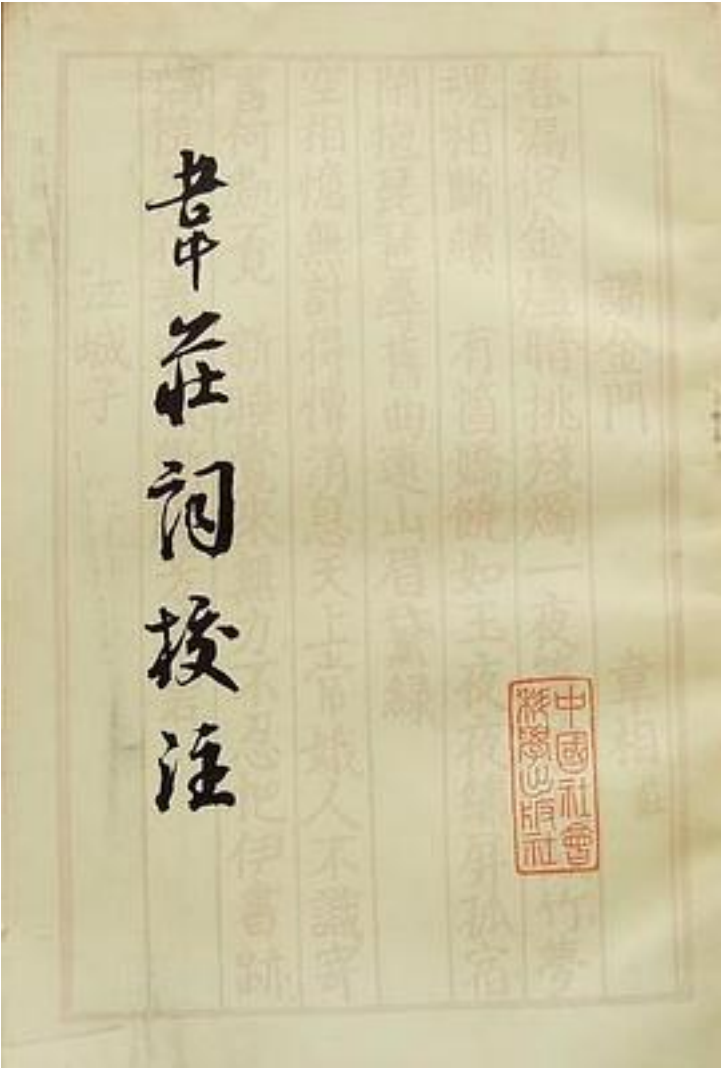 韋莊詞校注
中國社會
科學出版社
謁金門 韋相 莊
春漏促金燼暗挑殘燭一夜 竹夢
魂相斷續 有箇嬌饒如玉夜夜繡屏孤宿
閑抱琵琶尋舊曲遠山眉黛綠
空相憶無計得傳消息天上常娥人不識寄
書何處覓 新睡覺來無力不忍把伊書跡
滿院
江城子